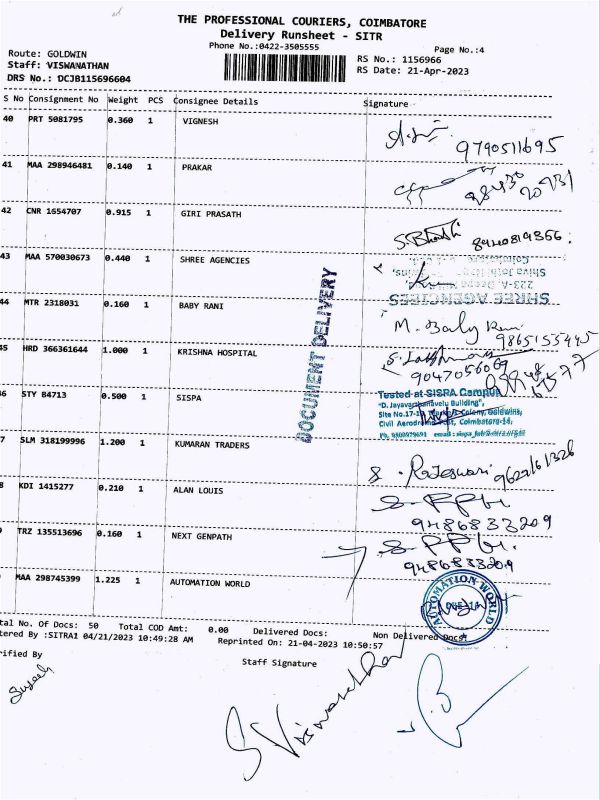 THE PROFESSIONAL COURIERS, COIMBATORE
Delivery Runsheet - SITR
Phone No.:0422-3505555
Page No.:4
Route: GOLDWIN
Staff: VISWANATHAN
DRS No.: DCJB115696604
RS No.: 1156966
RS Date: 21-Apr-2023
S No Consignment No Weight PCS Consignee Details Signature
40 PRT 5081795 0.360 1 VIGNESH
9790511695
41 MAA 298946481 0.140 1 PRAKAR
42 CNR 1654707 0.915 1 GIRI PRASATH
8940819366
43 MAA 570030673 0.440 1 SHREE AGENCIES
SHREE AGENCIES
44 MTR 2318031 0.160 1 BABY RANI
M. Baby Rani
9865155445
45 HRD 366361644 1.000 1 KRISHNA HOSPITAL
9047056069
DOCUMENT DELIVERY
6 STY 84713 0.500 1 SISPA
Tested at SISRA Campus
Civil Aerodrome Post, Coimbatore-14,
7 SLM 318199996 1.200 1 KUMARAN TRADERS
8 KDI 1415277 0.210 1 ALAN LOUIS
9486833209
TRZ 135513696 0.160 1 NEXT GENPATH
9486833209
MAA 298745399 1.225 1 AUTOMATION WORLD
AUTOMATION WORLD
tal No. Of Docs: 50 Total COD Amt: 0.00 Delivered Docs: Non Delivered Docs:
tered By :SITRA1 04/21/2023 10:49:28 AM Reprinted On: 21-04-2023 10:50:57
rified By
Staff Signature
S. Viswanathan